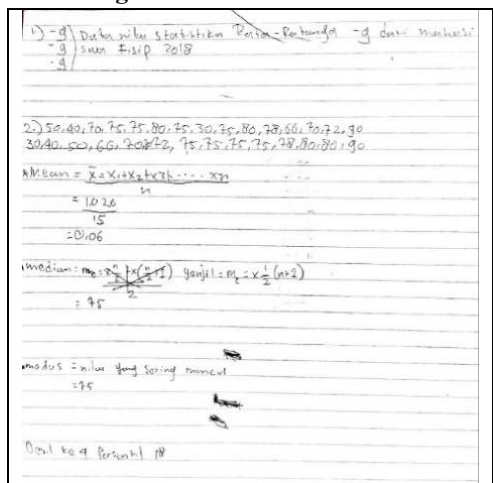 1.) -g Data nilai statistika -g dari mahasi
-g swa Fisip 2018
-g
2.) 50,40,70,75,75,80,75,30,75,80,78,66,70,72,90
30,40,50,66,70,72, 75,75,75,75,78,80,80,90
Mean = x̄ = x1+x2+x3+.....xn
n
= 1.026
15
= 0,06
median = ganjil = me = x 1/2 (n+1)
2
= 75
modus = nilai yang sering muncul
= 75
Desil ke 9 Persentil 18